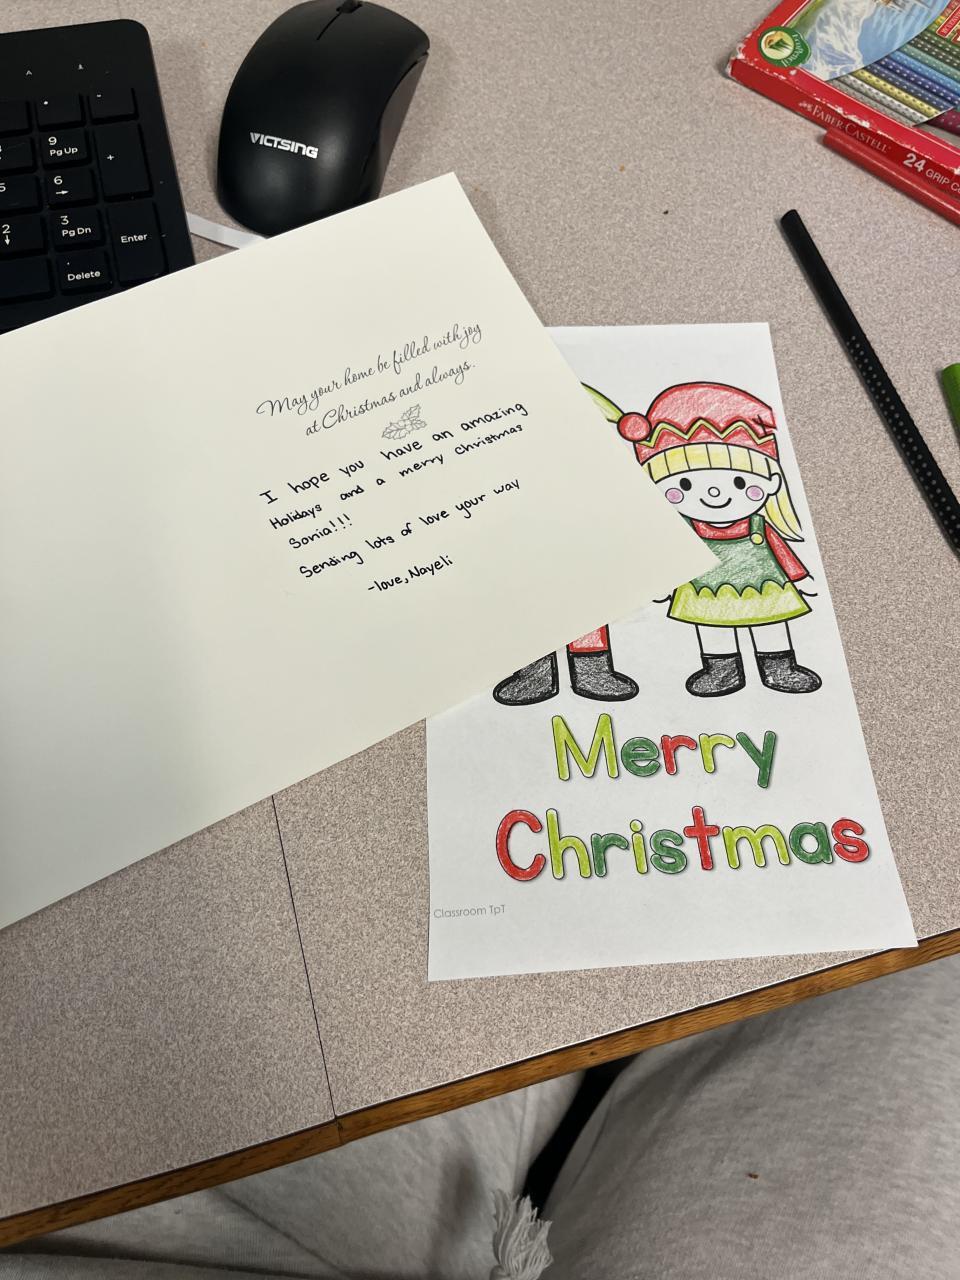 VICTSING
9
Pg Up
+
5
6
→
2
↓
3
Pg Dn
Enter
.
Delete
FABER-CASTELL
24 GRIP
May your home be filled with joy
at Christmas and always.
I hope you have an amazing
Holidays and a merry christmas
Sonia!!!
Sending lots of love your way
-love, Nayeli
Merry
Christmas
Classroom TpT